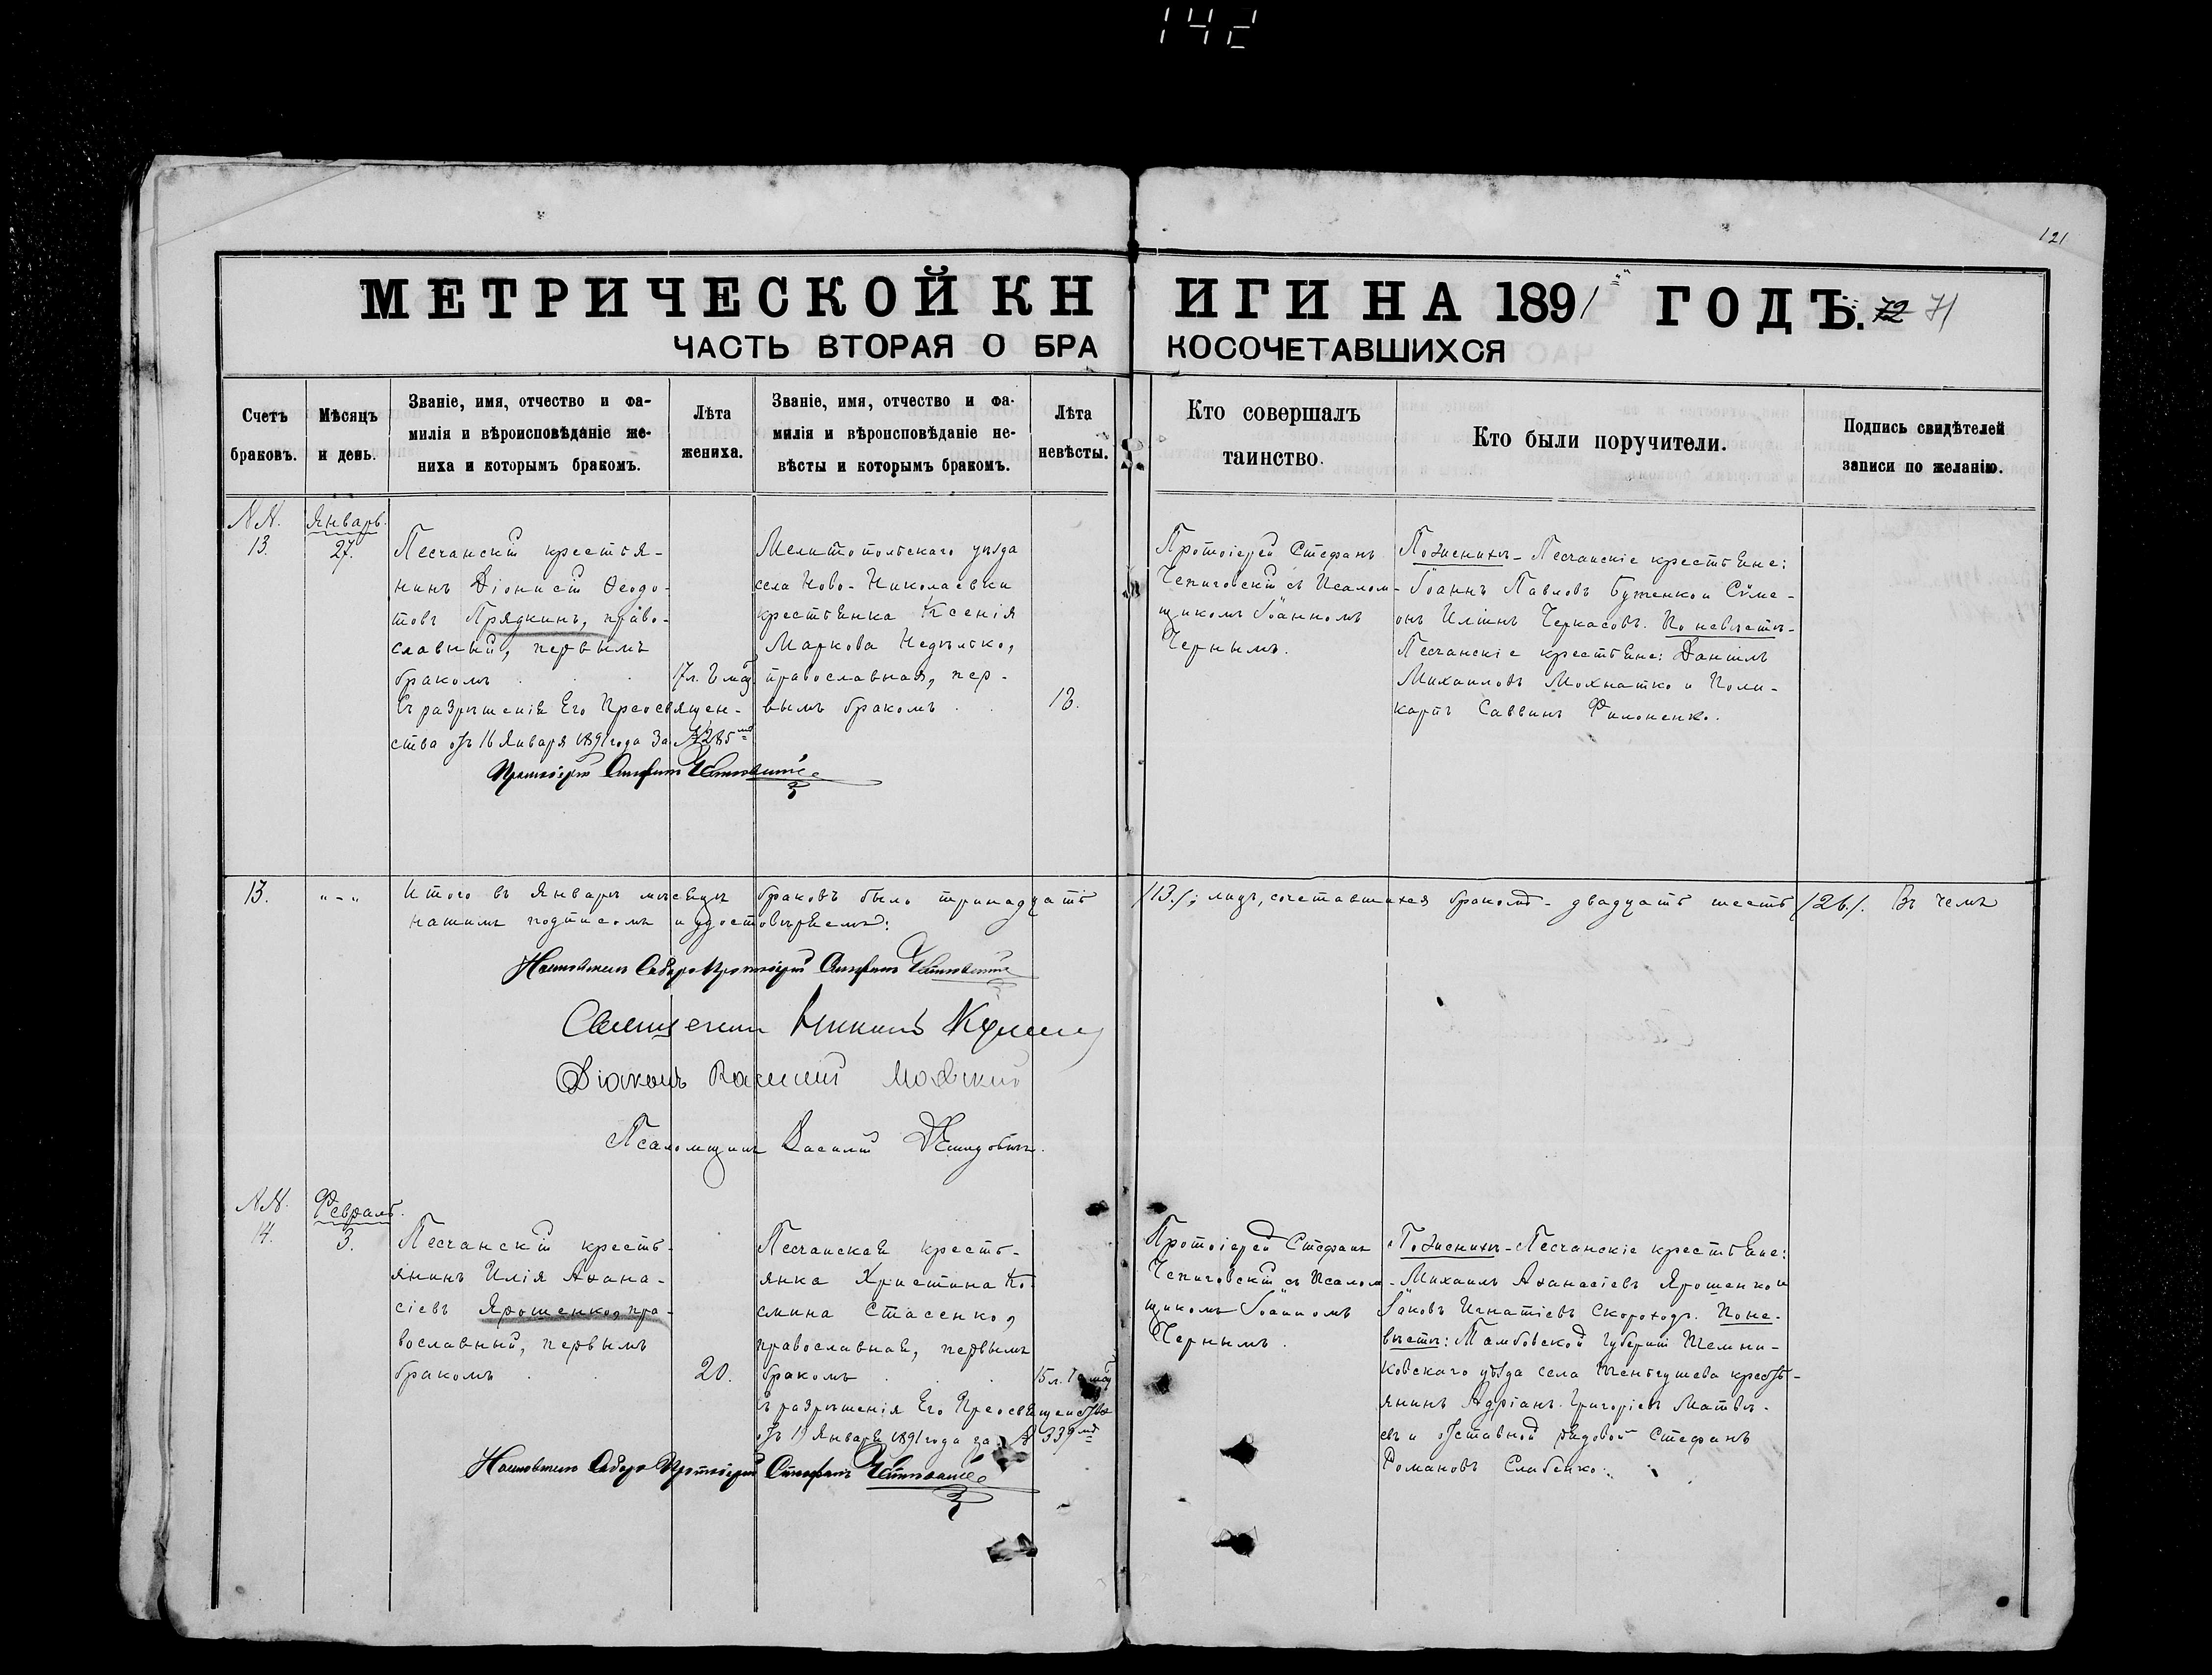 142
121
МЕТРИЧЕСКОЙ КНИГИ НА 1891 ГОДЪ. 72 71
ЧАСТЬ ВТОРАЯ О БРАКОСОЧЕТАВШИХСЯ
Счетъ
браковъ.
Мѣсяцъ
и день.
Званіе, имя, отчество и фа-
милія и вѣроисповѣданіе же-
ниха и которымъ бракомъ.
Лѣта
жениха.
Званіе, имя, отчество и фа-
милія и вѣроисповѣданіе не-
вѣсты и которымъ бракомъ.
Лѣта
невѣсты.
Кто совершалъ
таинство.
Кто были поручители.
Подпись свидѣтелей
записи по желанію.
NN.
13.
Январь.
27.
Песчанскій крестья-
нинъ Діонисій Ѳеодо-
товъ Прядкинъ, право-
славный, первымъ
бракомъ
Съ разрѣшенія Его Преосвящен-
ства отъ 16 Января 1891 года за №285
Протоіерей Стефанъ
17л.
Мелитопольскаго уѣзда
села Ново-Николаевки
крестьянка Ксенія
Маркова Недѣлько,
православная, пер-
вымъ бракомъ
18.
Протоіерей Стефанъ
съ Псалом-
щикомъ Іоанномъ
Чернымъ.
По женихѣ - Песчанскіе крестьяне:
Іоаннъ Павловъ Бутенко и Сѵме-
онъ Иліинъ Черкасовъ. По невѣстѣ -
Песчанскіе крестьяне: Даніилъ
Михаиловъ Мохнатко и Поли-
карпъ Саввинъ Филоненко.
13.
"-"
Итого въ Январѣ мѣсяцѣ браковъ было тринадцать /13./; лицъ, сочетавшихся бракомъ - двадцать шесть /26./. Въ чемъ
нашимъ подписомъ и удостовѣряемъ:
Настоятель Собора Протоіерей Стефанъ
Священникъ
Діаконъ Василій
Псаломщикъ Василій
NN.
14.
Февраль.
3.
Песчанскій кресть-
янинъ Илія Аѳана-
сіевъ Ярошенко, пра-
вославный, первымъ
бракомъ
20.
Песчанская кресть-
янка Христина Ко-
смина Стасенко,
православная, первымъ
бракомъ
Съ разрѣшенія Его Преосвященства
отъ 19 Января 1891 года за № 339
Настоятель Собора Протоіерей Стефанъ
15л.
Протоіерей Стефанъ
съ Псалом-
щикомъ Іоанномъ
Чернымъ.
По женихѣ - Песчанскіе крестьяне:
Михаилъ Аѳанасіевъ Ярошенко и
Іаковъ Игнатіевъ Скороходъ. По не-
вѣстѣ: Тамбовской губерніи Темни-
ковскаго уѣзда села кресть-
янинъ Адріанъ Григоріевъ Матвѣ-
евъ и отставной рядовой Стефанъ
Романовъ Слабенко.